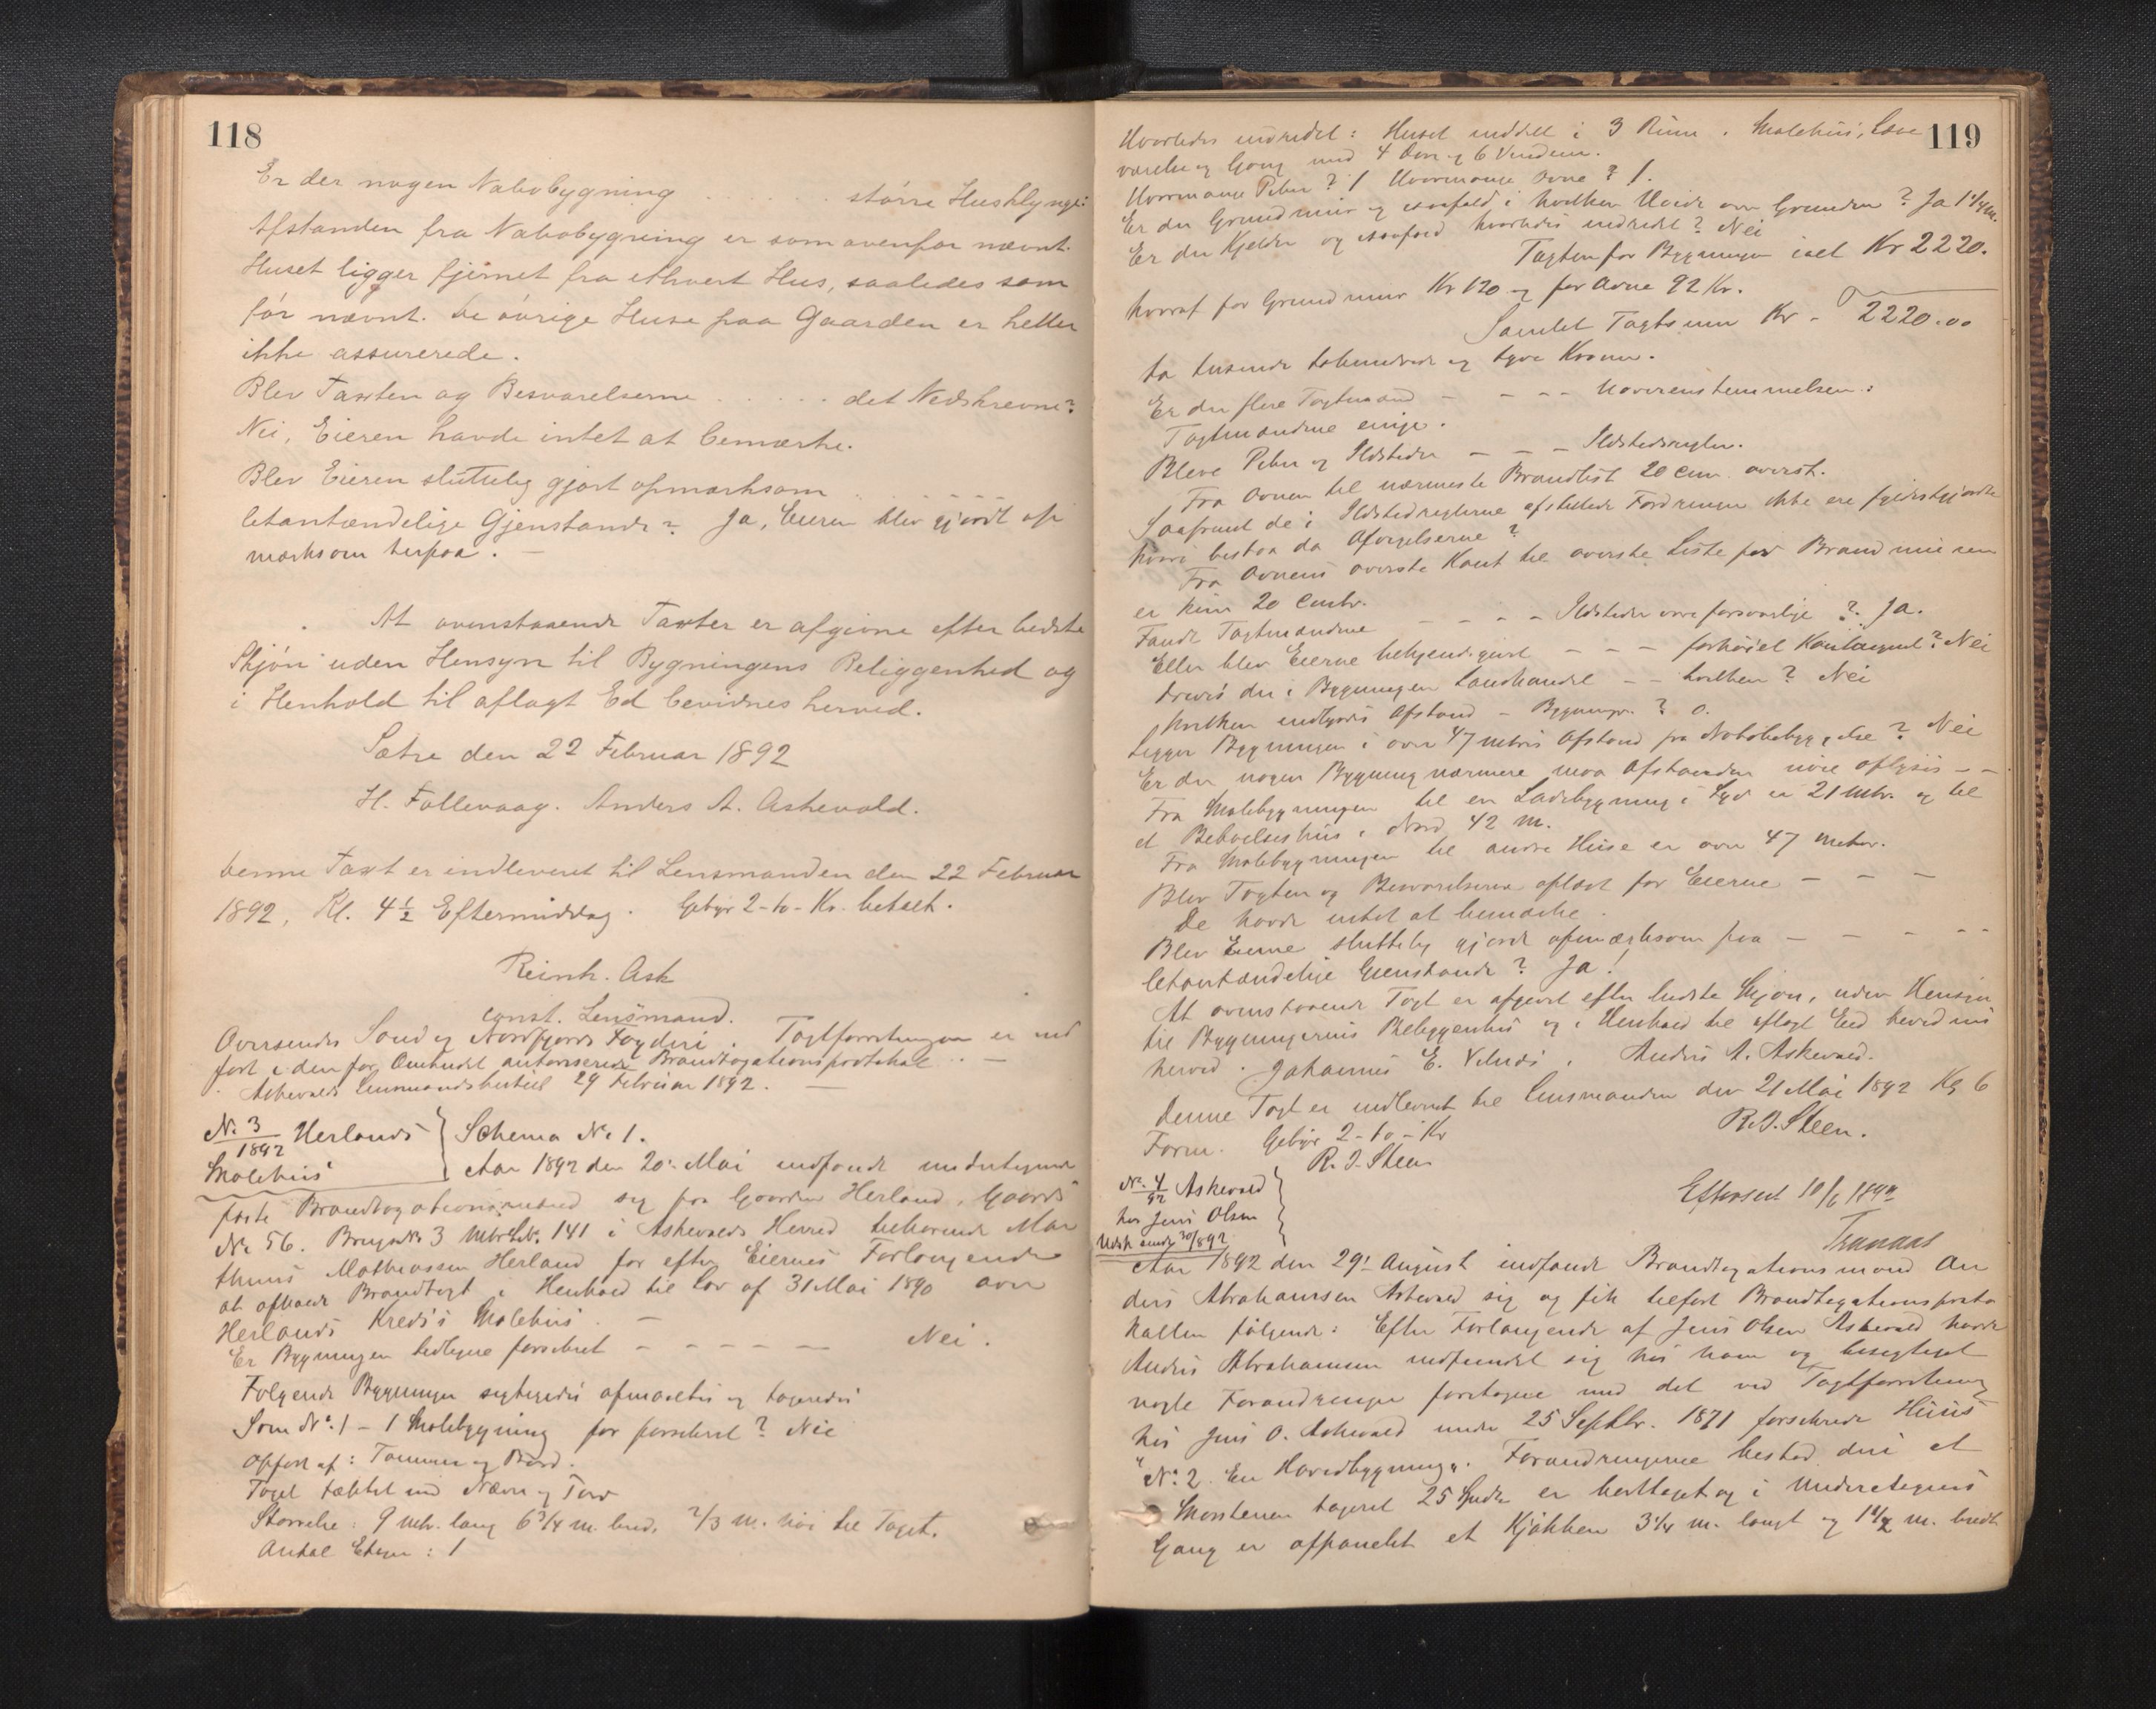 118
Er der nogen Nabobygning . . . . . . større Husklynge:
Afstanden fra Nabobygning er som ovenfor nævnt.
Huset ligger fjernet fra ethvert Hus, saaledes som
før nævnt. De øvrige Huse paa Gaarden er heller
ikke assurerede.
Blev Taxten og Besvarelserne . . . . . det Nedskrevne?
Nei, Eieren havde intet at bemærke.
Blev Eieren sluttelig gjort opmærksom . . - - - -
letantændelige Gjenstande? Ja, Eieren blev gjordt op
mærksom herpaa. -
At ovenstaaende Taxter er afgivne efter bedste
Skjøn uden Hensyn til Bygningens Beliggenhed og
i Henhold til aflagt Ed bevidnes herved.
Sætre den 22 Februar 1892
H. Follevaag. Anders A. Askevold.
Denne Taxt er indleveret til Lensmanden den 22 Februar
1892, Kl. 4½ Eftermiddag. Gebyr 2-10- Kr. betalt.
Reinh. Ask
const. Lensmand.
Oversendes Sond og Nordfjords Fogderi. Taxtforretningen er ind
ført i den for Ombudet autoriserede Brandtaxationsprotokol . . -
Askevolds Lensmandsbestil 29 Februar 1892. -
N. 3/1892 Herlands } Schema No 1.
Skolehus
Aar 1892 den 20de Mai indfandt undertegnede
faste Brandtaxationsmænd sig paa Gaarden Herland, Gaards
No 56. Brugs No 3 Mtr. L. No. 141 i Askevolds Herred tilhørende Mar
thinus Mathiassen Herland for efter Eiernes Forlangende
at afholde Brandtaxt i Henhold til Lov af 31 Mai 1890 over
Herlands Kreds's Skolehus. -
Er Bygningen tidligere forsikret - - - - - - Nei.
Følgende Bygninger besigtigedes opmaaltes og taxeredes
Som No. 1 - 1 Skolebygning før forsikret? Nei
Opført af: Tømmer og Bord.
Taget tækket med Næver og Torv
Størrelse: 9 mtr. lang 6¾ m. bred, 2/3 m. høi til Taget.
Antal Etager: 1
119
Hvorledes indredet: Huset inddelt i 3 Rum. Skolehus, Lære
værelse og Gang med 4 Døre og 6 Vinduer.
Hvormange Piber? 1 Hvormange Ovne? 1.
Er der Grundmur og isaafald i hvilken Høide over Grunden? Ja 1¼ m.
Er der Kjelder og isaafald hvorledes indredet? Nei
Taxten for Bygningen ialt Kr 2220.
hvoraf for Grundmur Kr 120 og for Ovne 92 Kr.
Samlet Taxtsum Kr - 2220.00
to tusende tohundrede og tyve Kroner.
Er der flere Taxtmænd - - - - Uoverensstemmelsen:
Taxtmændene enige.
Bleve Piber og Ildsteder - - - Ildstedsregler.
Fra Ovnen til nærmeste Brandlist 20 cm. øverst.
Saafremt de i Ildstedreglerne opstillede Fordringer ikke ere fyldestgjordte
hvori bestaa da Afvigelserne?
Fra Ovnens øverste Kant til øverste Liste for Brandmuren
er kun 20 Centr.
Fandt Taxtmændene - - - - Ildsteder være forsvarlige? Ja.
Eller blev Eierne bekjendtgjort - - - forhøiet Kontingent? Nei
Drives der i Bygningen Landhandel - - hvilken? Nei
Hvilken indbyrdes Afstand - Bygninger? 0.
Ligger Bygningen i over 47 meters Afstand fra Nabobebyggelse? Nei
Er der nogen Bygning nærmere maa Afstanden nøie oplyses - -
Fra Skolebygningen til en Ladebygning i Syd er 21 mtr. og til
et Beboelseshus i Nord 42 m.
Fra Skolebygningen til andre Huse er over 47 meter.
Blev Taxten og Besvarelserne oplæst for Eierne - - -
De havde intet at bemærke.
Blev Eierne sluttelig gjordt opmærksom paa - - - - -
letantændelige Gjenstande? Ja!
At ovenstaaende Taxt er afgivet efter bedste Skjøn, uden Hensyn
til Bygningernes Beliggenhed og i Henhold til aflagt Eed bevidnes
herved. Johannes E. Velnæs. Anders A. Askevold.
Denne Taxt er indleveret til Lensmanden den 21 Mai 1892 Kl 6
Form. Gebyr 2-10- Kr R. J. Steen.
R. J. Steen
No. 4/92 Askevold
hos Jens Olsen
Efterseet 10/6 189
Aar 1892 den 29de August indfandt Brandtaxationsmand An
ders Abrahamsen Askevold sig og fik tilført Brandtaxationsproto
kollen følgende: Efter Forlangende af Jens Olsen Askevold havde
Anders Abrahamsen indfundet sig hos ham og besigtiget
nogle Forandringer foretagne med det ved Taxtforretning
hos Jens O. Askevold under 25 Septbr. 1871 forsikrede Huus
"No. 2. En Hovedbygning". Forandringerne bestod deri at
Skorstenen taxeret 25 Spdlr er borttaget og i Underetagens
Gang er afpanelet et Kjøkken 3¼ m. langt og 1½ m. bredt